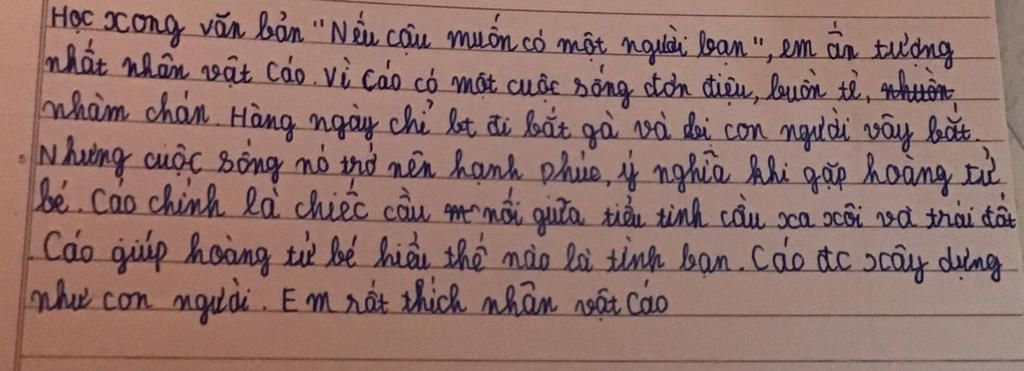 Học xong văn bản "Nếu cậu muốn có một người bạn", em ấn tượng
nhất nhân vật Cáo. Vì Cáo có một cuộc sống đơn điệu, buồn tẻ,
nhàm chán. Hàng ngày chỉ bt đi bắt gà và bị con người vây bắt.
Nhưng cuộc sống nó trở nên hạnh phúc, ý nghĩa khi gặp hoàng tử
bé. Cáo chính là chiếc cầu nối giữa tiểu tinh cầu xa xôi và trái đất
Cáo giúp hoàng tử bé hiểu thế nào là tình bạn. Cáo đc xây dựng
như con người. Em rất thích nhân vật Cáo